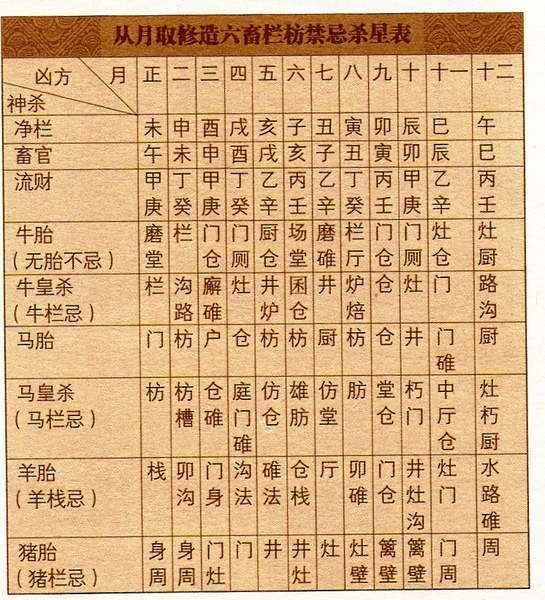 从月取修造六畜栏枋禁忌杀星表
凶方 月 正 二 三 四 五 六 七 八 九 十 十一 十二
神杀
净栏 未 申 酉 戌 亥 子 丑 寅 卯 辰 巳 午
畜官 午 未 申 酉 戌 亥 子 丑 寅 卯 辰 巳
流财 甲 丁 甲 丁 乙 丙 乙 丁 丙 甲 乙 丙
庚 癸 庚 癸 辛 壬 辛 癸 壬 庚 辛 壬
牛胎 磨 栏 门 门 厨 场 磨 栏 门 门 灶 灶
(无胎不忌) 堂 仓 厕 仓 堂 碓 厅 仓 厕 仓 厨
牛皇杀 栏 沟 廨 灶 井 囷 井 炉 仓 灶 门 路
(牛栏忌) 路 碓 炉 仓 焙 沟
马胎 门 枋 户 仓 枋 枋 厨 枋 仓 井 门 厨
碓
马皇杀 枋 枋 仓 庭 仿 雄 仿 肪 堂 朽 中 灶
(马栏忌) 槽 碓 门 仓 肪 堂 仓 门 厅 朽
碓 仓 厨
羊胎 栈 卯 门 沟 碓 仓 厅 卯 门 井 灶 水
(羊栈忌) 沟 身 法 法 栈 碓 仓 灶 门 路
沟 碓
猪胎 身 身 门 门 井 井 灶 灶 篱 篱 门 周
(猪栏忌) 周 周 灶 灶 壁 壁 壁 周